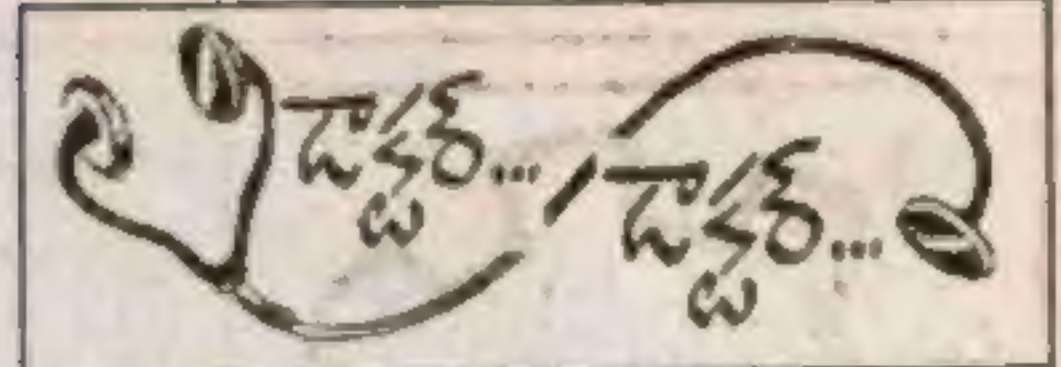 డాక్టర్...
డాక్టర్...